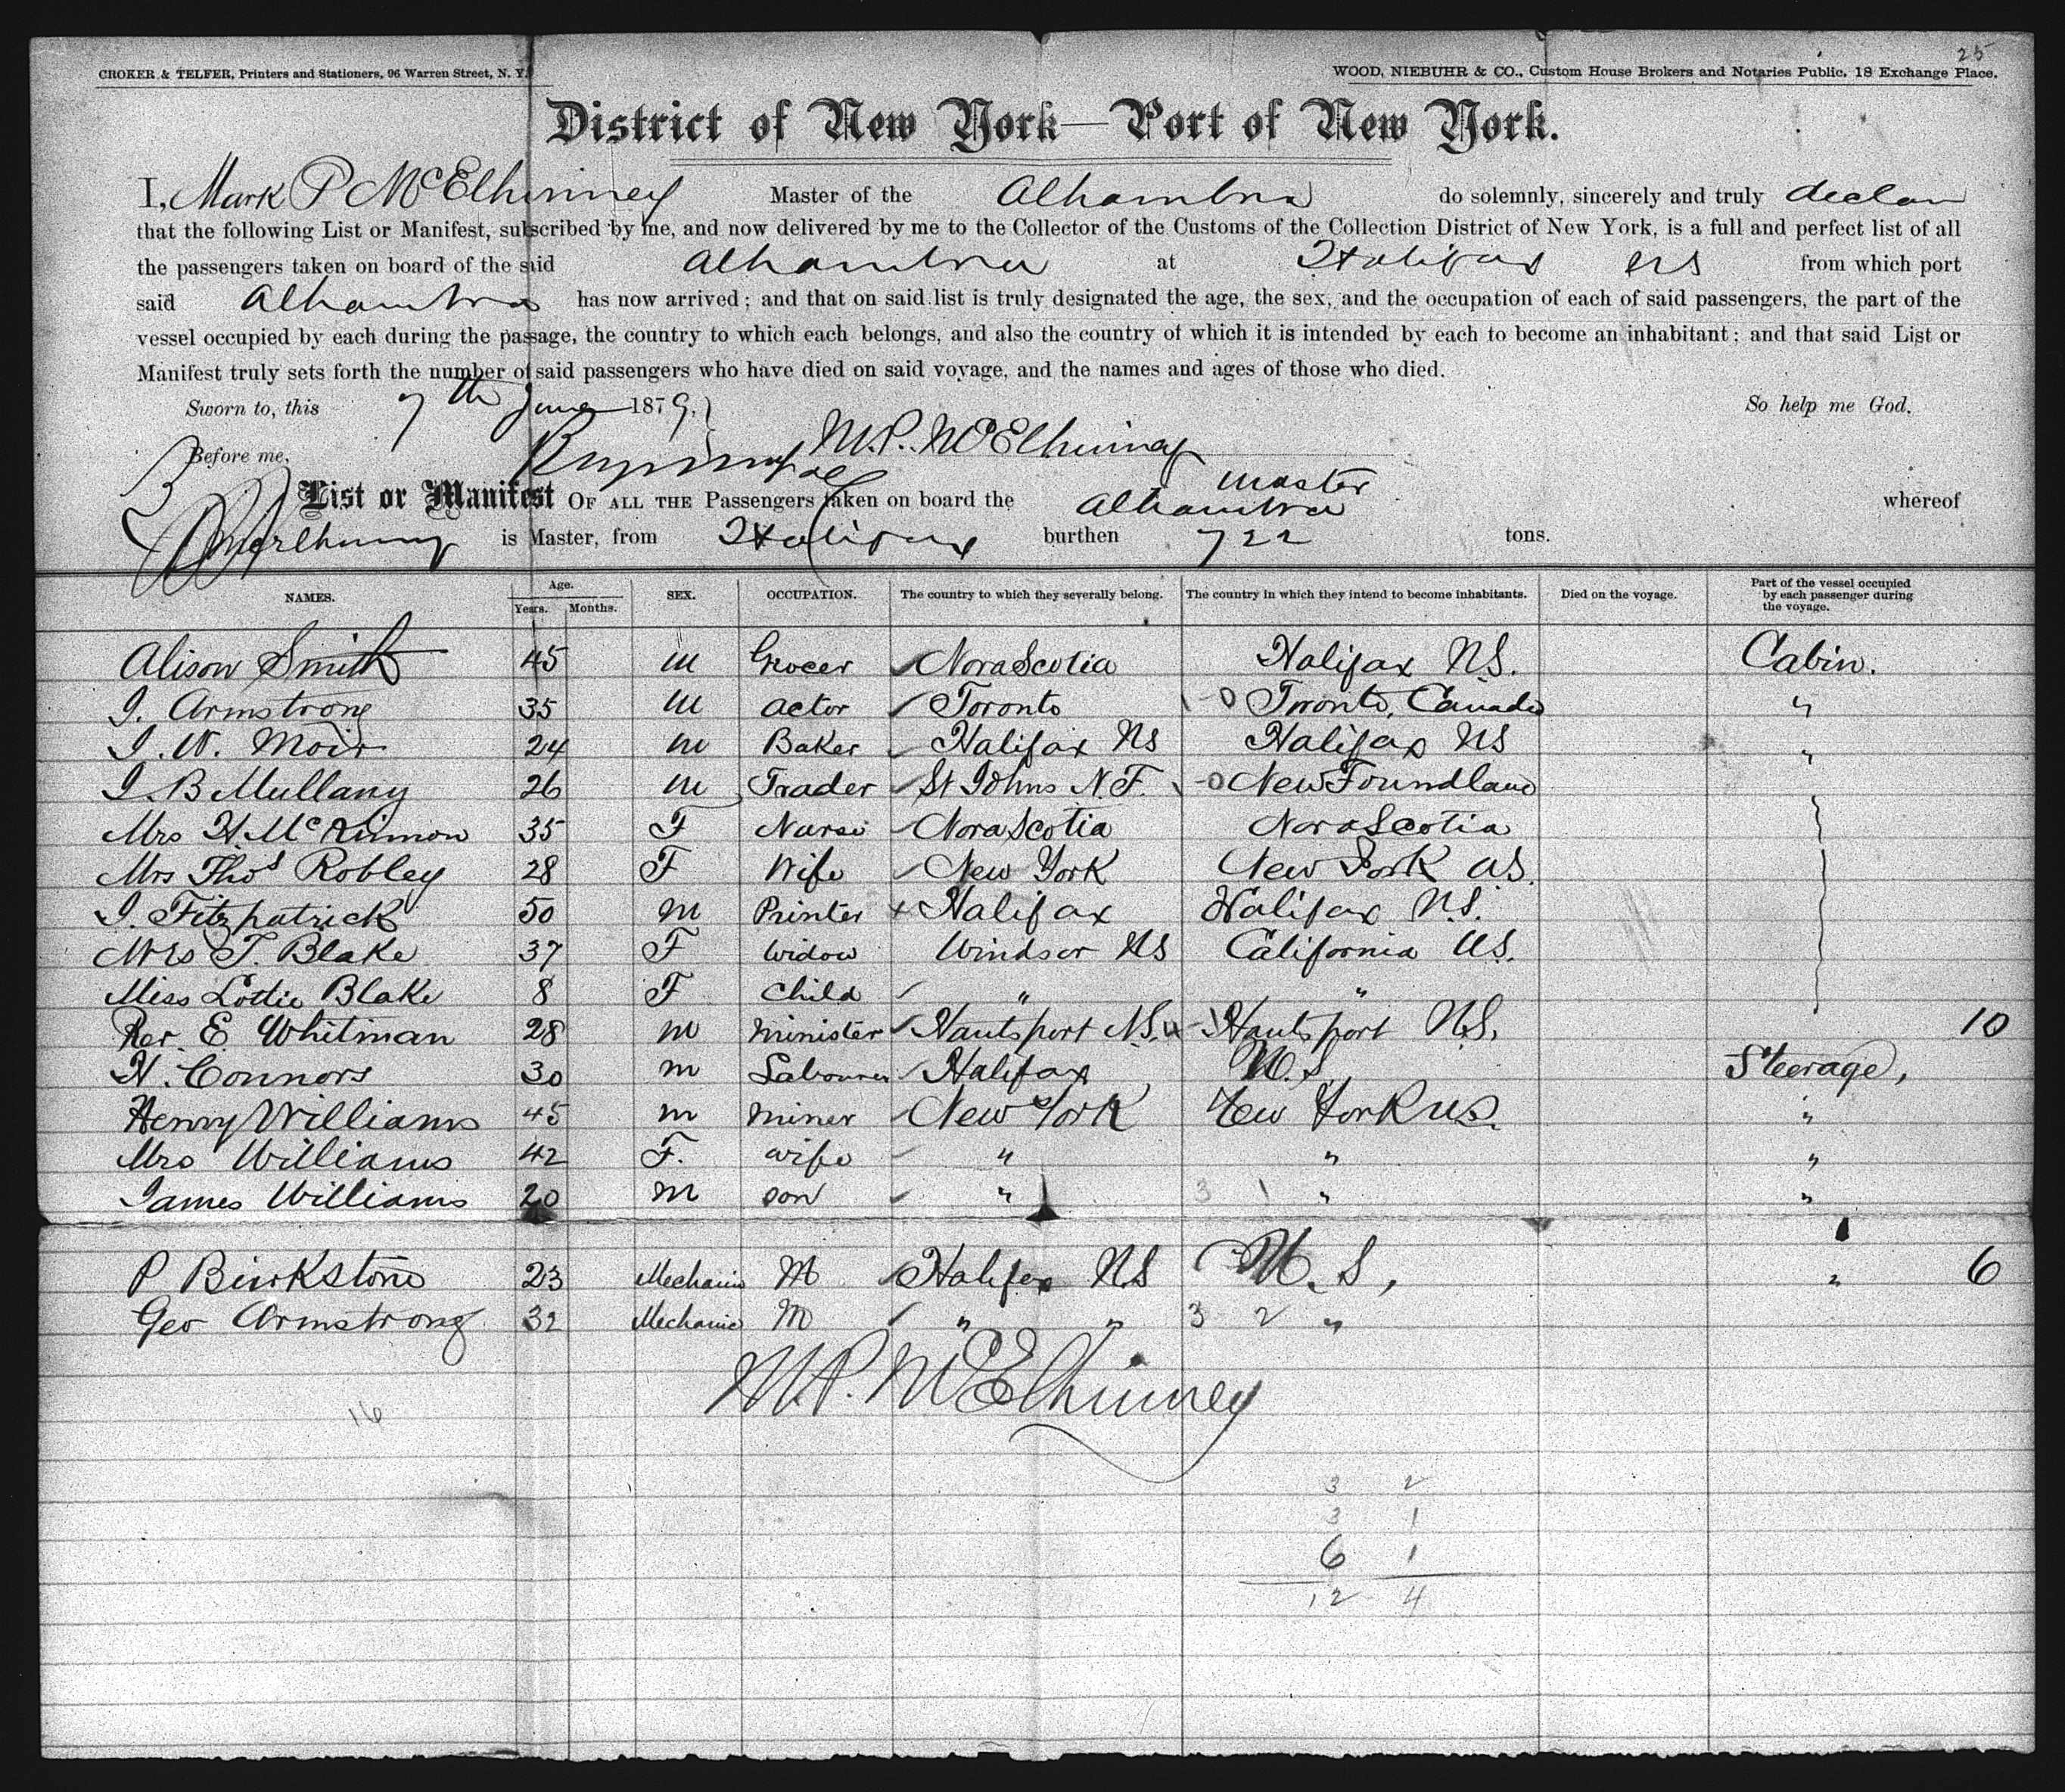 25
CROKER & TELFER, Printers and Stationers, 96 Warren Street, N. Y.
WOOD, NIEBUHR & CO., Custom House Brokers and Notaries Public, 18 Exchange Place.
District of New York—Port of New York.
I, Mark P McElhinney Master of the Alhambra do solemnly, sincerely and truly declare
that the following List or Manifest, subscribed by me, and now delivered by me to the Collector of the Customs of the Collection District of New York, is a full and perfect list of all
the passengers taken on board of the said Alhambra at Halifax from which port
said Alhambra has now arrived; and that on said list is truly designated the age, the sex, and the occupation of each of said passengers, the part of the
vessel occupied by each during the passage, the country to which each belongs, and also the country of which it is intended by each to become an inhabitant; and that said List or
Manifest truly sets forth the number of said passengers who have died on said voyage, and the names and ages of those who died.
Sworn to, this 7th June 1879. So help me God.
M.P. McElhinney
Before me,
master
List or Manifest OF ALL THE Passengers taken on board the Alhambra whereof
McElhinney is Master, from Halifax burthen 722 tons.
NAMES. Age. Years. Months. SEX. OCCUPATION. The country to which they severally belong. The country in which they intend to become inhabitants. Died on the voyage. Part of the vessel occupied by each passenger during the voyage.
Alison Smith 45 M Grocer Nova Scotia Halifax N.S. Cabin.
J. Armstrong 35 M Actor Toronto Toronto, Canada "
J. W. Moir 24 M Baker Halifax NS Halifax NS "
J. B Mullany 26 M Trader St Johns N.F. New Foundland
Mrs H. McKinnon 35 F Nurse Nova Scotia Nova Scotia
Mrs Thos Robley 28 F Wife New York New York US.
J. Fitzpatrick 50 M Printer Halifax Halifax N.S.
Mrs T. Blake 37 F Widow Windsor NS California US.
Miss Lottie Blake 8 F Child " "
Rev E Whitman 28 M Minister Hantsport N.S. Hantsport N.S. 10
H. Connors 30 M Labourer Halifax U.S. Steerage,
Henry Williams 45 M Miner New York New York US. "
Mrs Williams 42 F. Wife " " "
James Williams 20 M Son " 3 1 " "
P Binkstone 23 Mechanic M Halifax NS U.S, " 6
Geo Armstrong 32 Mechanic M " " 3 2 "
M.P. McElhinney
16
3 2
3 1
6 1
12 4